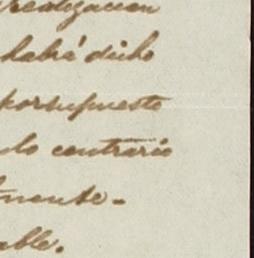 realizacion
habrá dicho
porsupuesto
lo contrario
mente-
able.